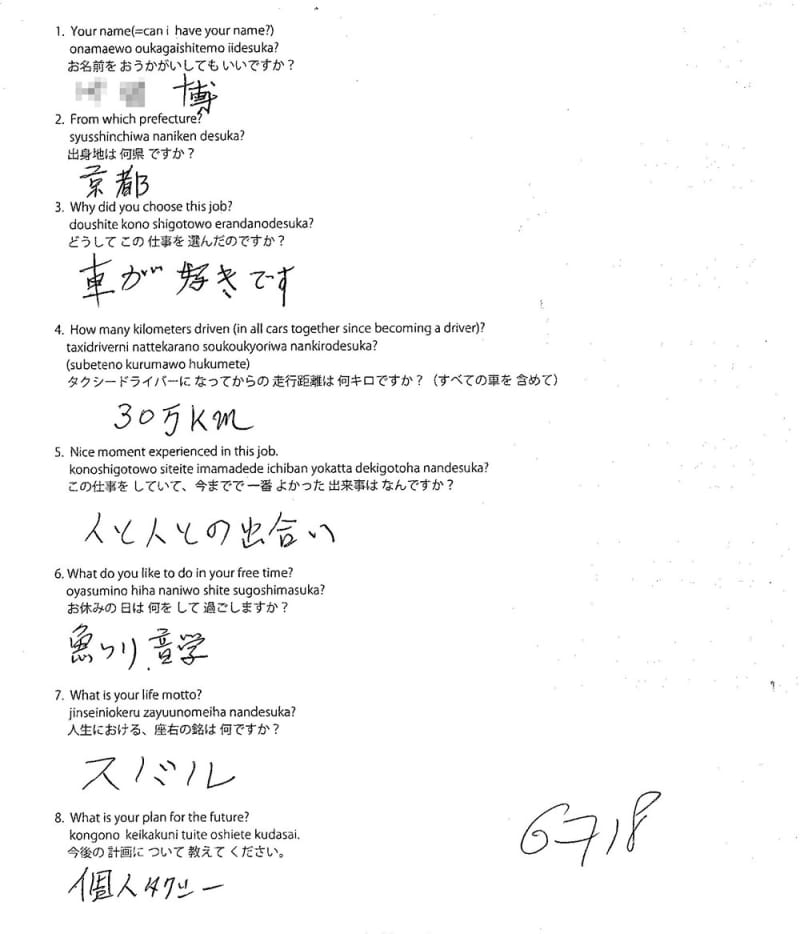 1. Your name(=can i have your name?)
onamaewo oukagaishitemo iidesuka?
お名前を おうかがいしても いいですか？
博
2. From which prefecture?
syusshinchiwa naniken desuka?
出身地は 何県 ですか？
京都
3. Why did you choose this job?
doushite kono shigotowo erandanodesuka?
どうして この 仕事を 選んだのですか？
車が好きです
4. How many kilometers driven (in all cars together since becoming a driver)?
taxidriverni nattekarano soukoukyoriwa nankirodesuka?
(subeteno kurumawo hukumete)
タクシードライバーに なってからの 走行距離は 何キロですか？（すべての車を 含めて）
30万km
5. Nice moment experienced in this job.
konoshigotowo siteite imamadede ichiban yokatta dekigotoha nandesuka?
この仕事を していて、今までで 一番 よかった 出来事は なんですか？
人と人との出合い
6. What do you like to do in your free time?
oyasumino hiha naniwo shite sugoshimasuka?
お休みの 日は 何を して 過ごしますか？
魚つり、音学
7. What is your life motto?
jinseiniokeru zayuunomeiha nandesuka?
人生における、座右の銘は 何ですか？
スバル
8. What is your plan for the future?
kongono keikakuni tuite oshiete kudasai.
今後の 計画に ついて 教えて ください。
個人タクシー
6718